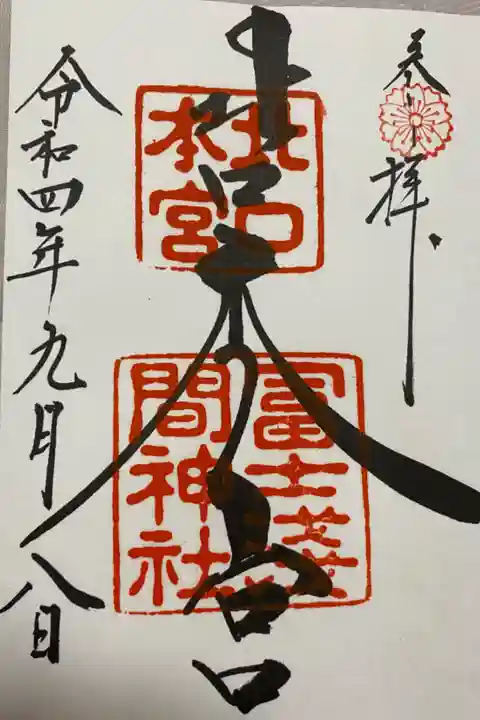 参拝
北口本宮
北口
本宮
冨士浅
間神社
令和四年九月八日